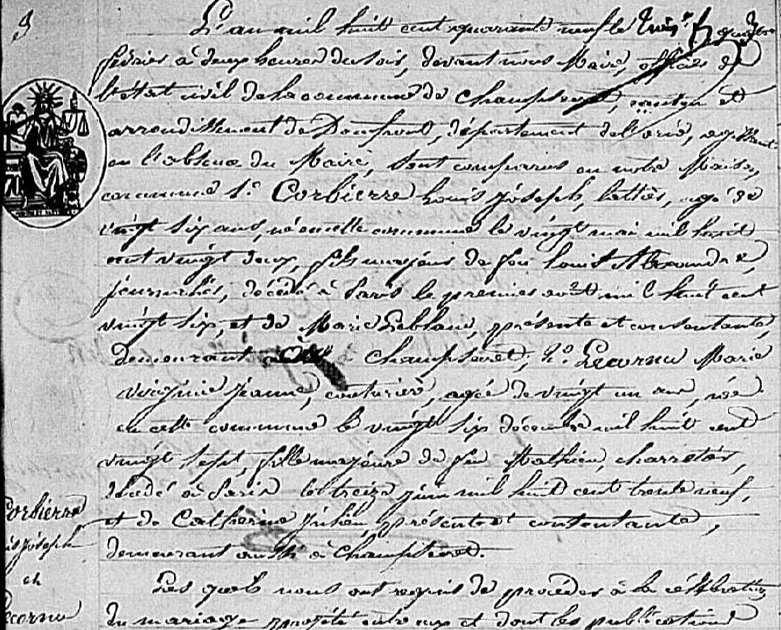 9
L'an mil huit cent quarante neuf le trois
février à deux heures du soir, devant nous Maire, officier de
l'état civil de la commune de Champsecret, canton et
arrondissement de Domfront, département de l'orne,
en l'absence du Maire, sont comparus en notre Maison
commune 1.º Corbierre Louis Joseph, agé de
vingt six ans, né en cette commune le vingt mai mil huit
cent vingt deux, fils majeur de feu Louis Alexandre,
journalier, décédé à Paris le premier août mil huit cent
vingt six, et de Marie Leblanc, présente et consentante,
demeurant à Champsecret; 2.º Lecornu Marie
Virginie Jeanne, couturière, agée de vingt un ans, née
en cette commune le vingt six décembre mil huit cent
vingt sept, fille majeure de feu Mathieu, charretier,
décédé à Paris le treize juin mil huit cent trente neuf,
et de Catherine Julien, présente et consentante,
demeurant aussi à Champsecret.
Corbierre
Louis Joseph
et
Lecornu
Les quels nous ont requis de procéder à la célébration
du mariage projeté entre eux et dont les publications